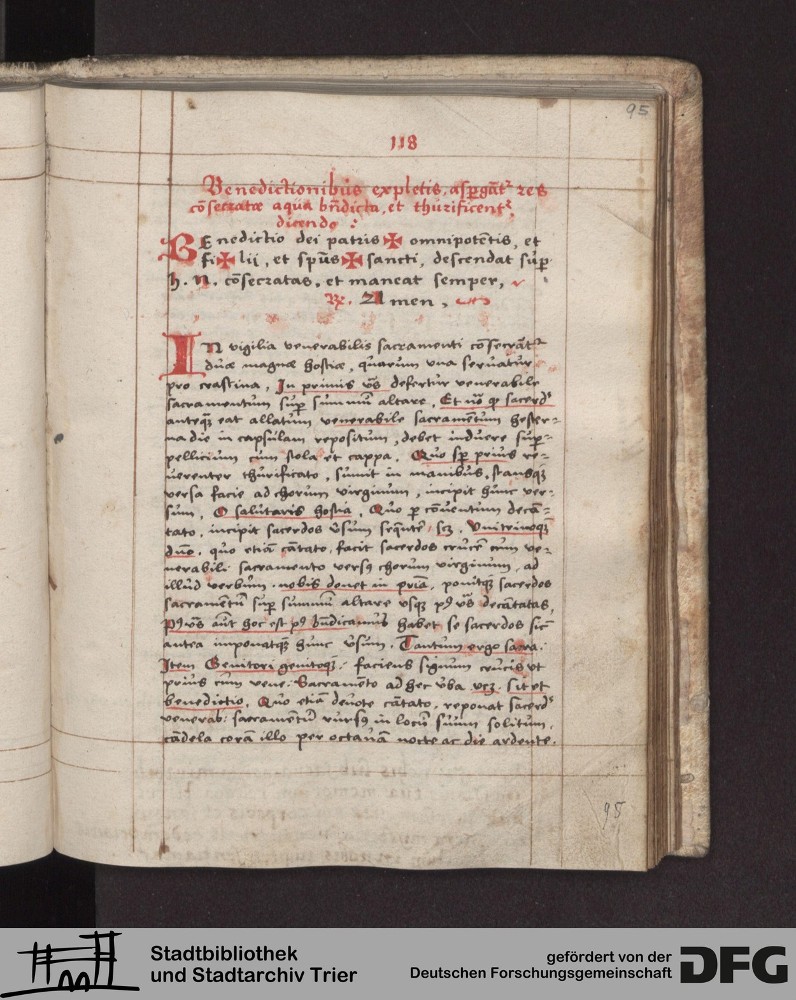 95
118
Benedictionibus expletis, asp̱gāt᷑ res
cōsecratæ aqua bn̄dicta, et thurificent᷑
dicendo :
BEnedictio dei patris ✠ omnipotētis, et
fi ✠ lii, et spūs ✠ sancti, descendat sup̱
h. N. cōsecratas, et maneat semper,
℞. Amen,
IN vigilia venerabilis sacramenti cōsecrāt᷑
duæ magnæ hostiæ, quarum vna seruatur
pro crastina, In primis v̄s defertur venerabile
sacramentum sup̱ summū altare, Et
anteq̄ eat allatum venerabile sacramētum hester=
na die in capsulam repositum, debet induere sup̱=
pellicium cum stola et cappa, Quo prius re=
uerenter thurificato, sumit in manibus, stansq̄
versa facie ad chorum virginum, incipit hunc ver=
sum, O salutaris hostia, Quo p̱ cōuentum decā=
tato, incipit sacerdos v̄sum seq̄ntē, scz, Vni trinoq̄
dn̄o, quo etiā cātato, facit sacerdos crucē cum ve=
nerabili sacramento versꝰ chorum virginum, ad
illud verbum, nobis donet in priā, ponitq̄ sacerdos
sacramētū sup̱ summū altare vsq̄ pꝰ v̄s decātatas,
Pꝰ v̄s aūt hoc est pꝰ bn̄dicamus habet se sacerdos sic̄
antea imponatq̄ hunc v̄sum, Tantum ergo sacra:
Item Genitori genitoq̄: faciens signum crucis vt
prius cum vene: Sacramēto ad hec v̄ba vcz, sit et
benedictio, Quo etiā deuote cātato, reponat sacerdˢ
venerab: sacramētū rursꝰ in locū suum solitum,
cādela corā illo per octauā nocte ac die ardente.
95
Stadtbibliothek
und Stadtarchiv Trier
gefördert von der
Deutschen Forschungsgemeinschaft
DFG